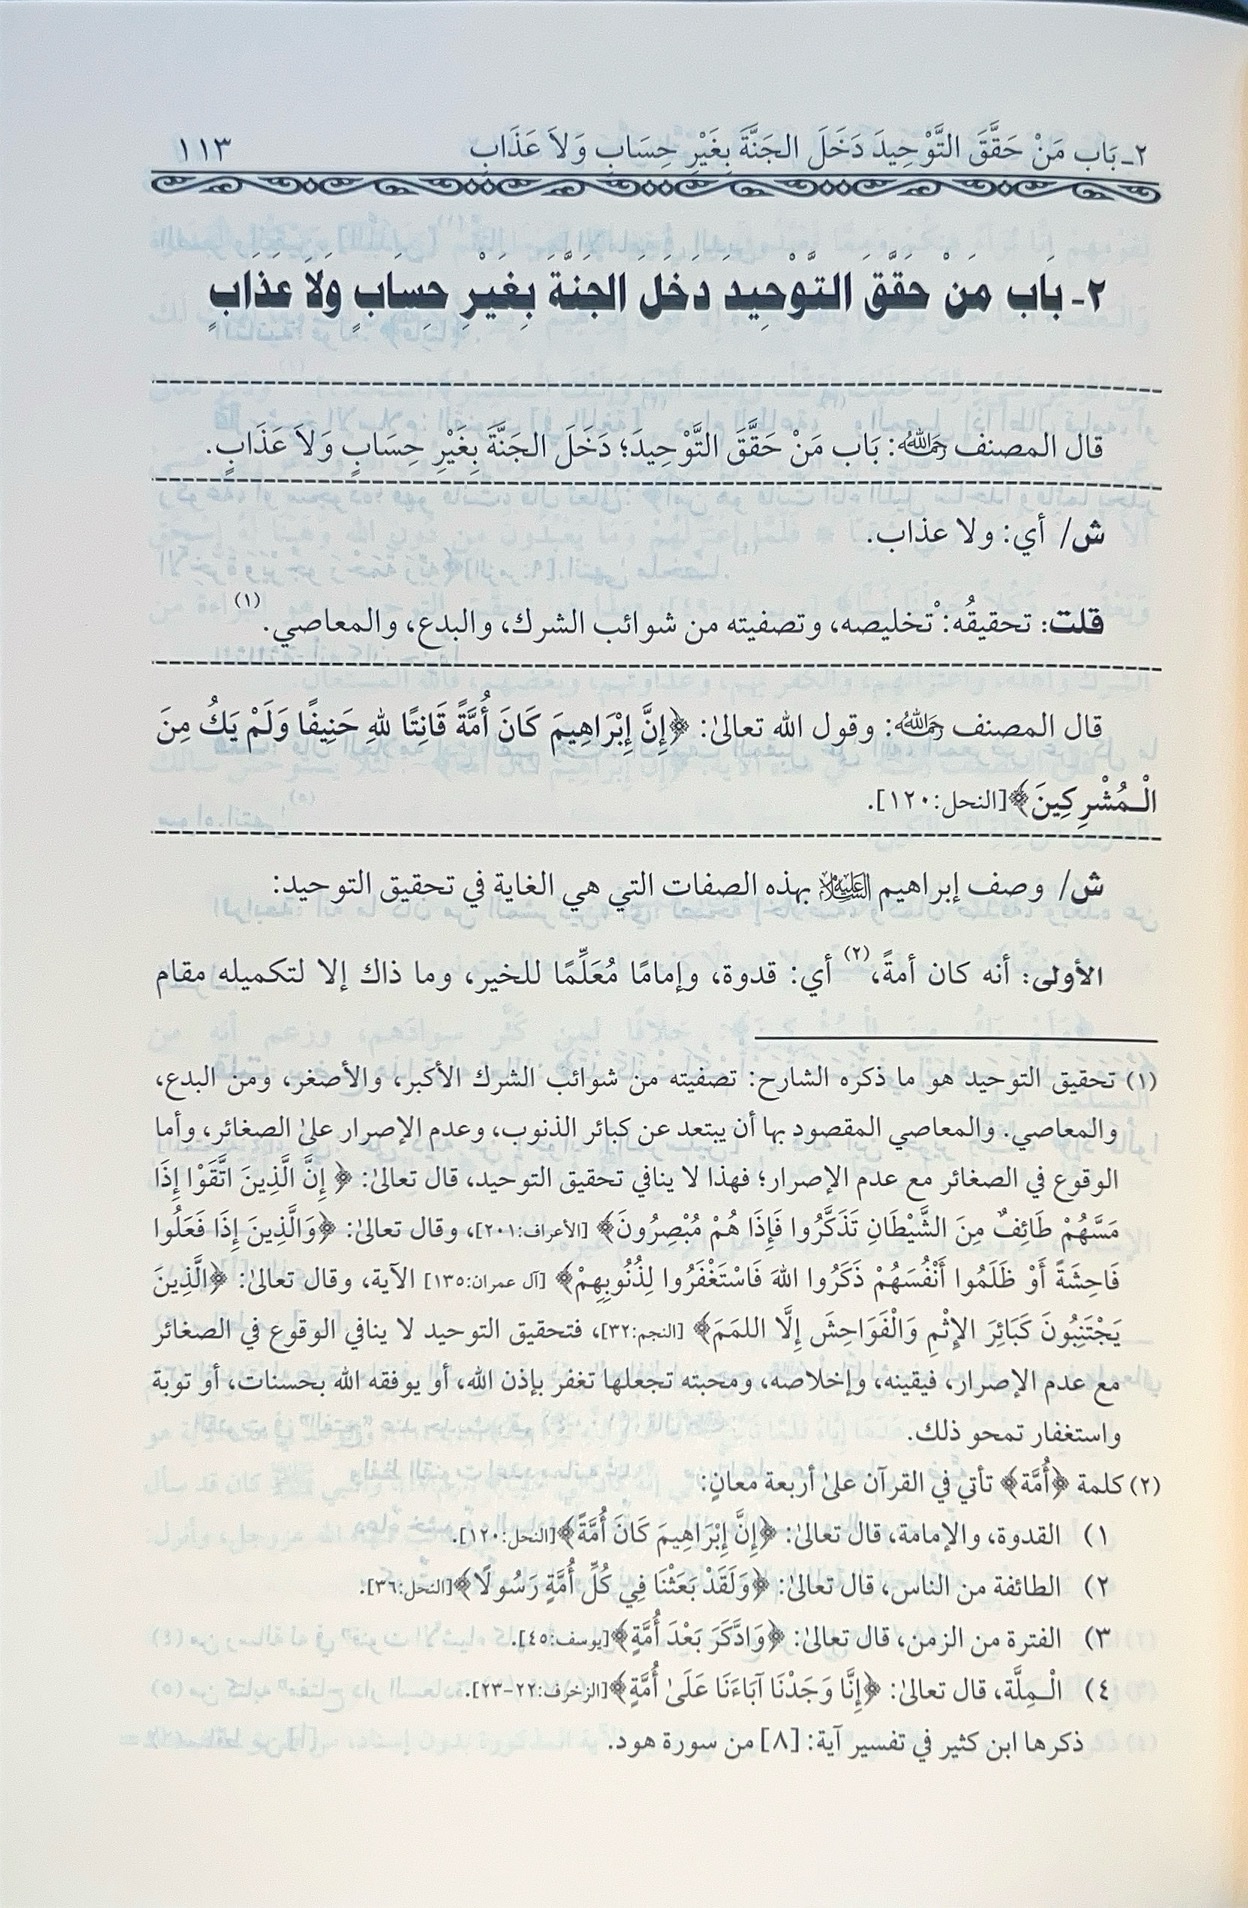 ٢ـ بَاب مَنْ حَقَّقَ التَّوْحِيدَ دَخَلَ الجَنَّةَ بِغَيْرِ حِسَابٍ وَلاَ عَذَابٍ ١١٣
٢- بَاب مَنْ حَقَّقَ التَّوْحِيدَ دَخَلَ الجَنَّةَ بِغَيْرِ حِسَابٍ وَلاَ عَذَابٍ
قال المصنف رحمه الله: بَاب مَنْ حَقَّقَ التَّوْحِيدَ؛ دَخَلَ الجَنَّةَ بِغَيْرِ حِسَابٍ وَلاَ عَذَابٍ.
ش/ أي: ولا عذاب.
قلت: تحقيقُه: تْخليصه، وتصفيته من شوائب الشرك، والبدع، والمعاصي.(١)
قال المصنف رحمه الله: وقول الله تعالىٰ: ﴿إِنَّ إِبْرَاهِيمَ كَانَ أُمَّةً قَانِتًا للهِ حَنِيفًا وَلَمْ يَكُ مِنَ
الْـمُشْرِكِينَ﴾[النحل:١٢٠].
ش/ وصف إبراهيم عليه السلام بهذه الصفات التي هي الغاية في تحقيق التوحيد:
الأولى: أنه كان أمةً،(٢) أي: قدوة، وإمامًا مُعَلِّمًا للخير، وما ذاك إلا لتكميله مقام
(١) تحقيق التوحيد هو ما ذكره الشارح: تصفيته من شوائب الشرك الأكبر، والأصغر، ومن البدع،
والمعاصي. والمعاصي المقصود بها أن يبتعد عن كبائر الذنوب، وعدم الإصرار علىٰ الصغائر، وأما
الوقوع في الصغائر مع عدم الإصرار؛ فهذا لا ينافي تحقيق التوحيد، قال تعالىٰ: ﴿ إِنَّ الَّذِينَ اتَّقَوْا إِذَا
مَسَّهُمْ طَائِفٌ مِنَ الشَّيْطَانِ تَذَكَّرُوا فَإِذَا هُمْ مُبْصِرُونَ﴾ [الأعراف:٢٠١]، وقال تعالىٰ: ﴿وَالَّذِينَ إِذَا فَعَلُوا
فَاحِشَةً أَوْ ظَلَمُوا أَنْفُسَهُمْ ذَكَرُوا اللهَ فَاسْتَغْفَرُوا لِذُنُوبِهِمْ﴾ [آل عمران:١٣٥] الآية، وقال تعالىٰ: ﴿الَّذِينَ
يَجْتَنِبُونَ كَبَائِرَ الإِثْمِ وَالْفَوَاحِشَ إِلَّا اللمَمَ﴾ [النجم:٣٢]، فتحقيق التوحيد لا ينافي الوقوع في الصغائر
مع عدم الإصرار، فيقينه، وإخلاصه، ومحبته تجعلها تغفر بإذن الله، أو يوفقه الله بحسنات، أو توبة
واستغفار تمحو ذلك.
(٢) كلمة ﴿أُمَّة﴾ تأتي في القرآن علىٰ أربعة معانٍ:
١) القدوة، والإمامة، قال تعالىٰ: ﴿إِنَّ إِبْرَاهِيمَ كَانَ أُمَّةً﴾[النحل:١٢٠].
٢) الطائفة من الناس، قال تعالىٰ: ﴿وَلَقَدْ بَعَثْنَا فِي كُلِّ أُمَّةٍ رَسُولًا﴾[النحل:٣٦].
٣) الفترة من الزمن، قال تعالىٰ: ﴿وَادَّكَرَ بَعْدَ أُمَّةٍ﴾[يوسف:٤٥].
٤) الْـمِلَّة، قال تعالىٰ: ﴿إِنَّا وَجَدْنَا آبَاءَنَا عَلَىٰ أُمَّةٍ﴾[الزخرف:٢٢-٢٣].
ذكرها ابن كثير في تفسير آية: [٨] من سورة هود.